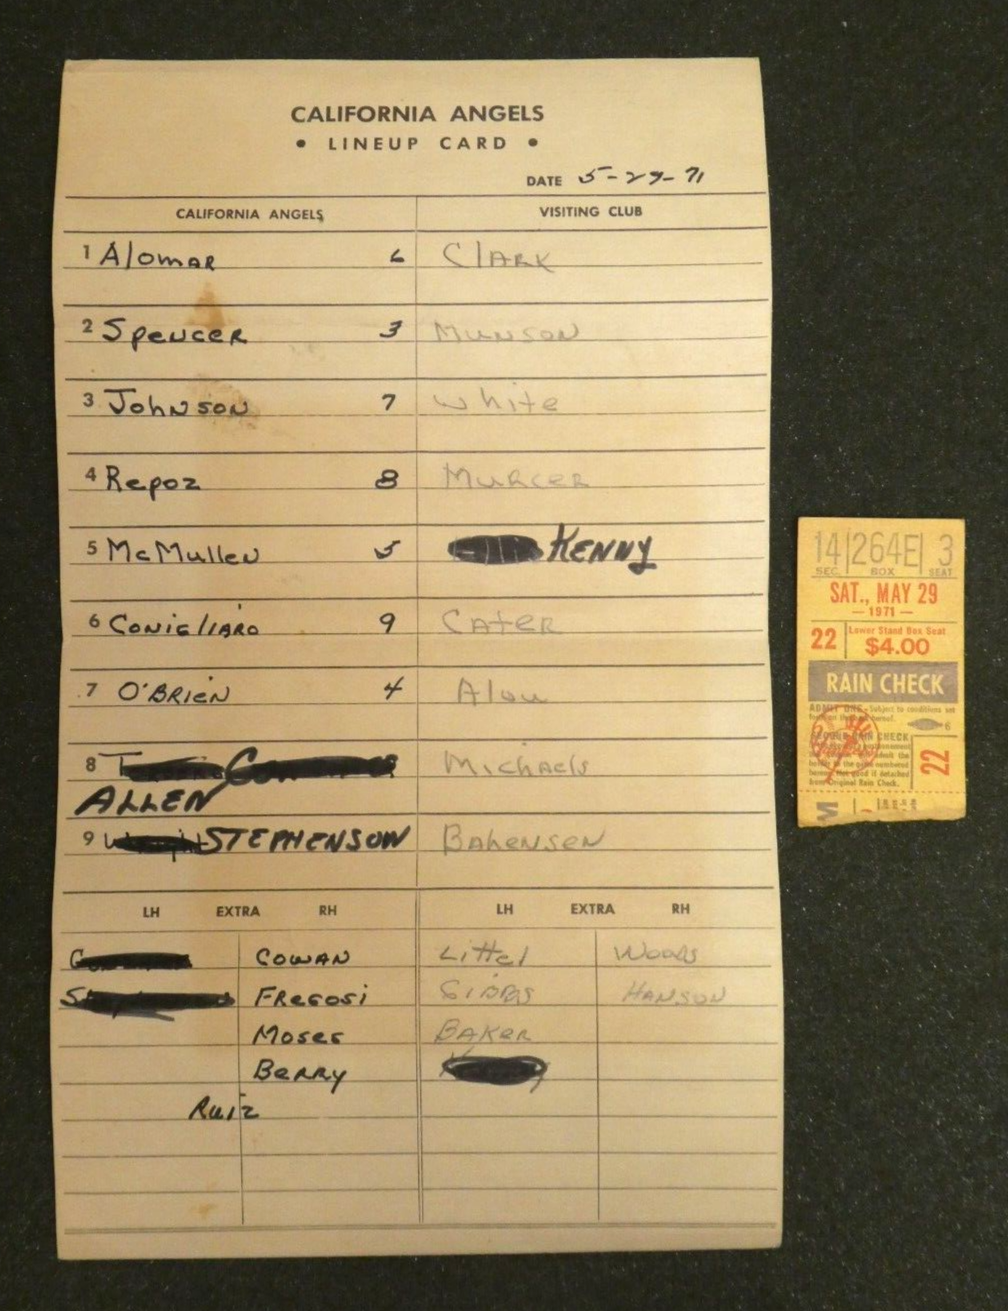 CALIFORNIA ANGELS
• LINEUP CARD •
DATE 5-29-71
CALIFORNIA ANGELS VISITING CLUB
1 Alomar 6 Clark
2 Spencer 3 Munson
3 Johnson 7 White
4 Repoz 8 Murcer
5 McMullen 5 KENNY
6 Conigliaro 9 Cater
7 O'Brien 4 Alou
8 Michaels
ALLEN
9 STEPHENSON Bahensen
LH EXTRA RH LH EXTRA RH
Cowan Littel Woods
Fregosi Gibbs Hanson
Moses Baker
Berry
Ruiz
14 264E 3
SEC. BOX SEAT
SAT., MAY 29
— 1971 —
22 Lower Stand Box Seat
$4.00
RAIN CHECK
ADMIT ONE—Subject to conditions set
6
RAIN CHECK
22